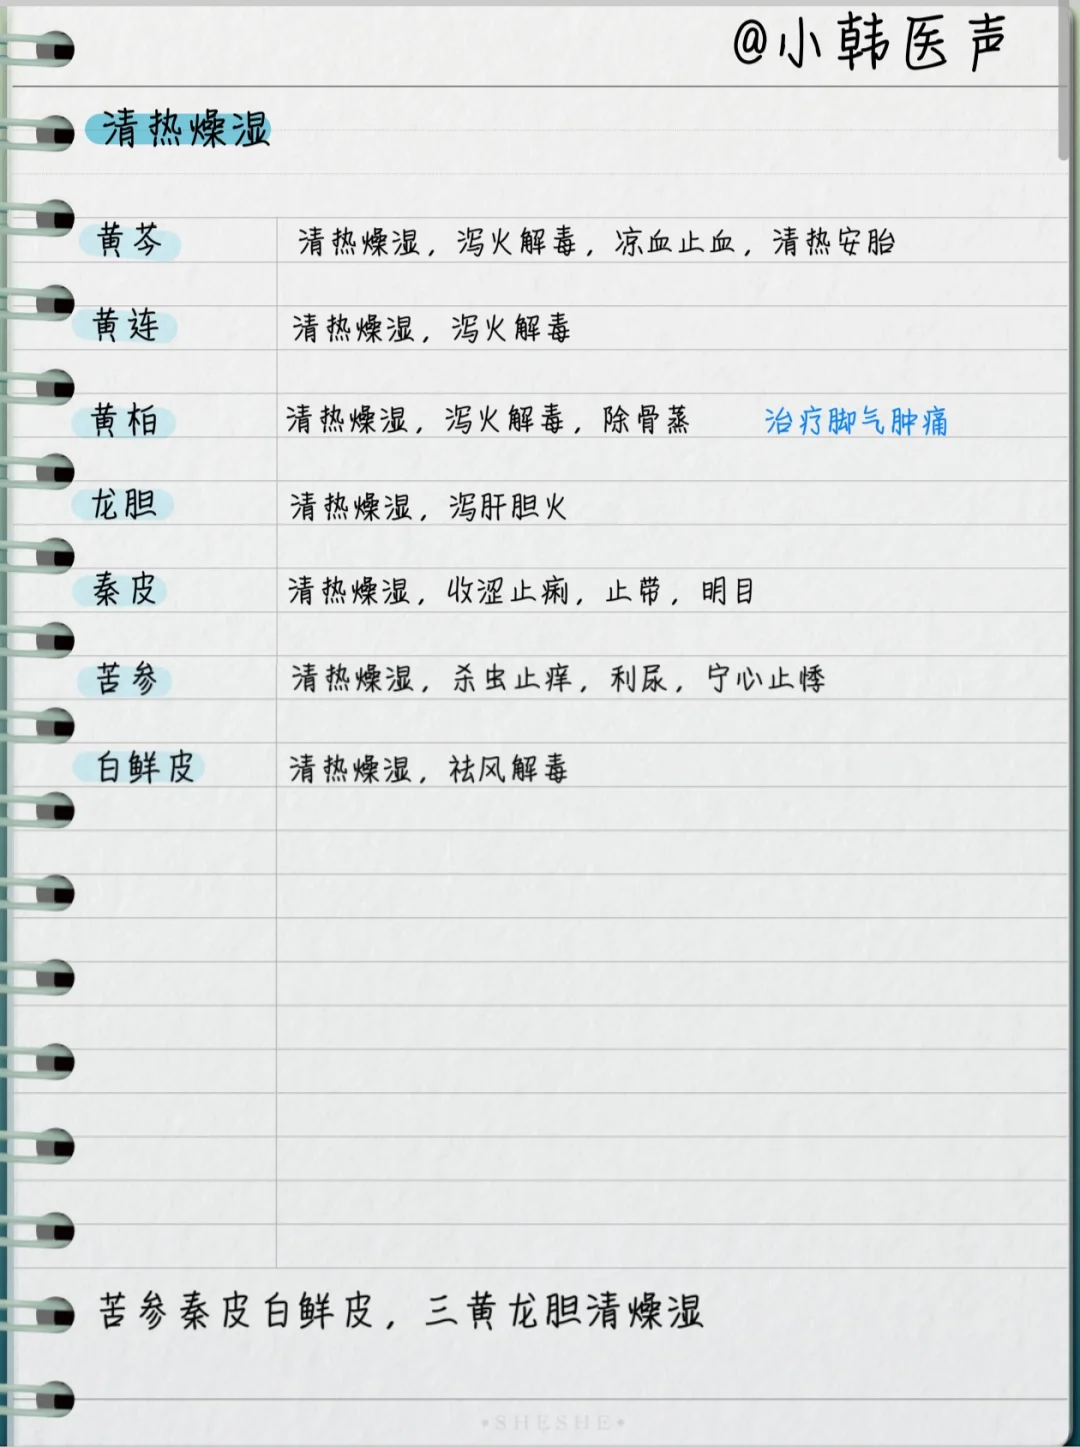 @小韩医声
清热燥湿
黄芩 清热燥湿，泻火解毒，凉血止血，清热安胎
黄连 清热燥湿，泻火解毒
黄柏 清热燥湿，泻火解毒，除骨蒸 治疗脚气肿痛
龙胆 清热燥湿，泻肝胆火
秦皮 清热燥湿，收涩止痢，止带，明目
苦参 清热燥湿，杀虫止痒，利尿，宁心止悸
白鲜皮 清热燥湿，祛风解毒
苦参秦皮白鲜皮，三黄龙胆清燥湿
•SHESHE•